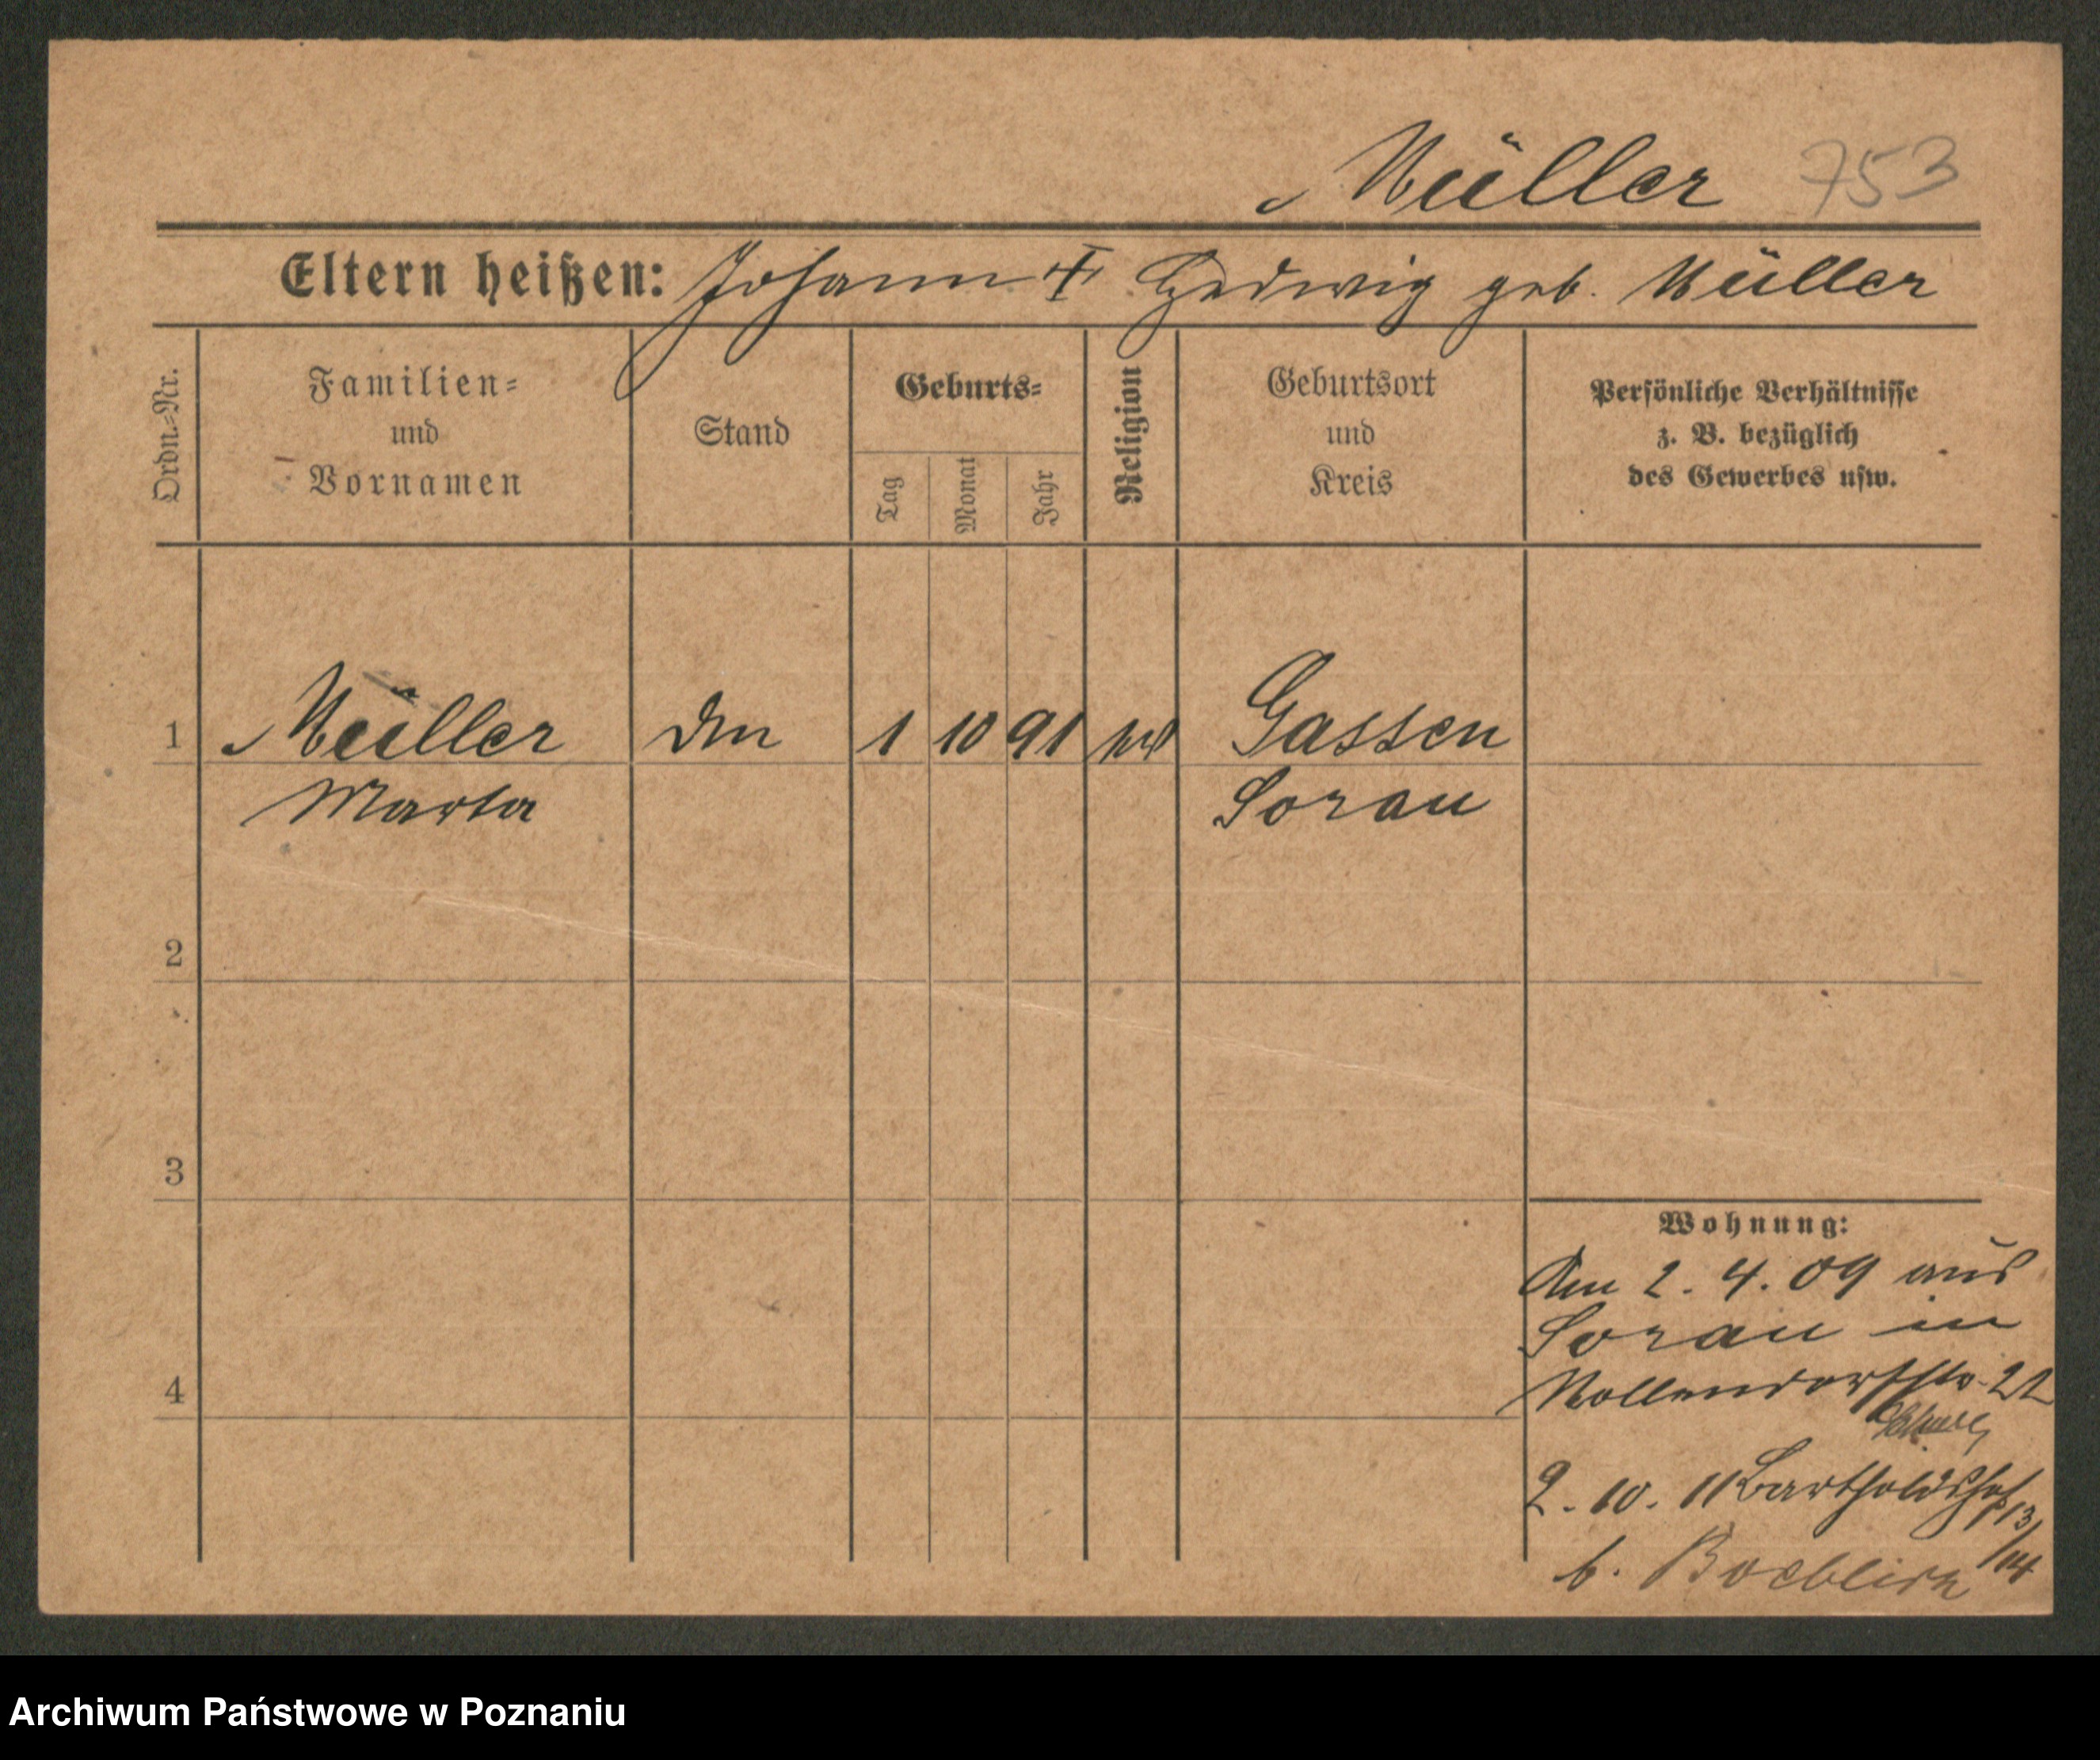 Müller 753
Eltern heißen: Johann † Hedwig geb. Müller
Ordn.=Nr.
Familien=
und
Vornamen
Stand
Geburts=
Tag
Monat
Jahr
Religion
Geburtsort
und
Kreis
Persönliche Verhältnisse
z. B. bezüglich
des Gewerbes usw.
1 Müller 1 10 91 Gassen
Marta Sorau
2
3
4
Wohnung:
Am 2. 4. 09 aus
Sorau in
Nollendorfstr. 22
2. 10. 11 Bartholdshof 13/14
b.
Archiwum Państwowe w Poznaniu